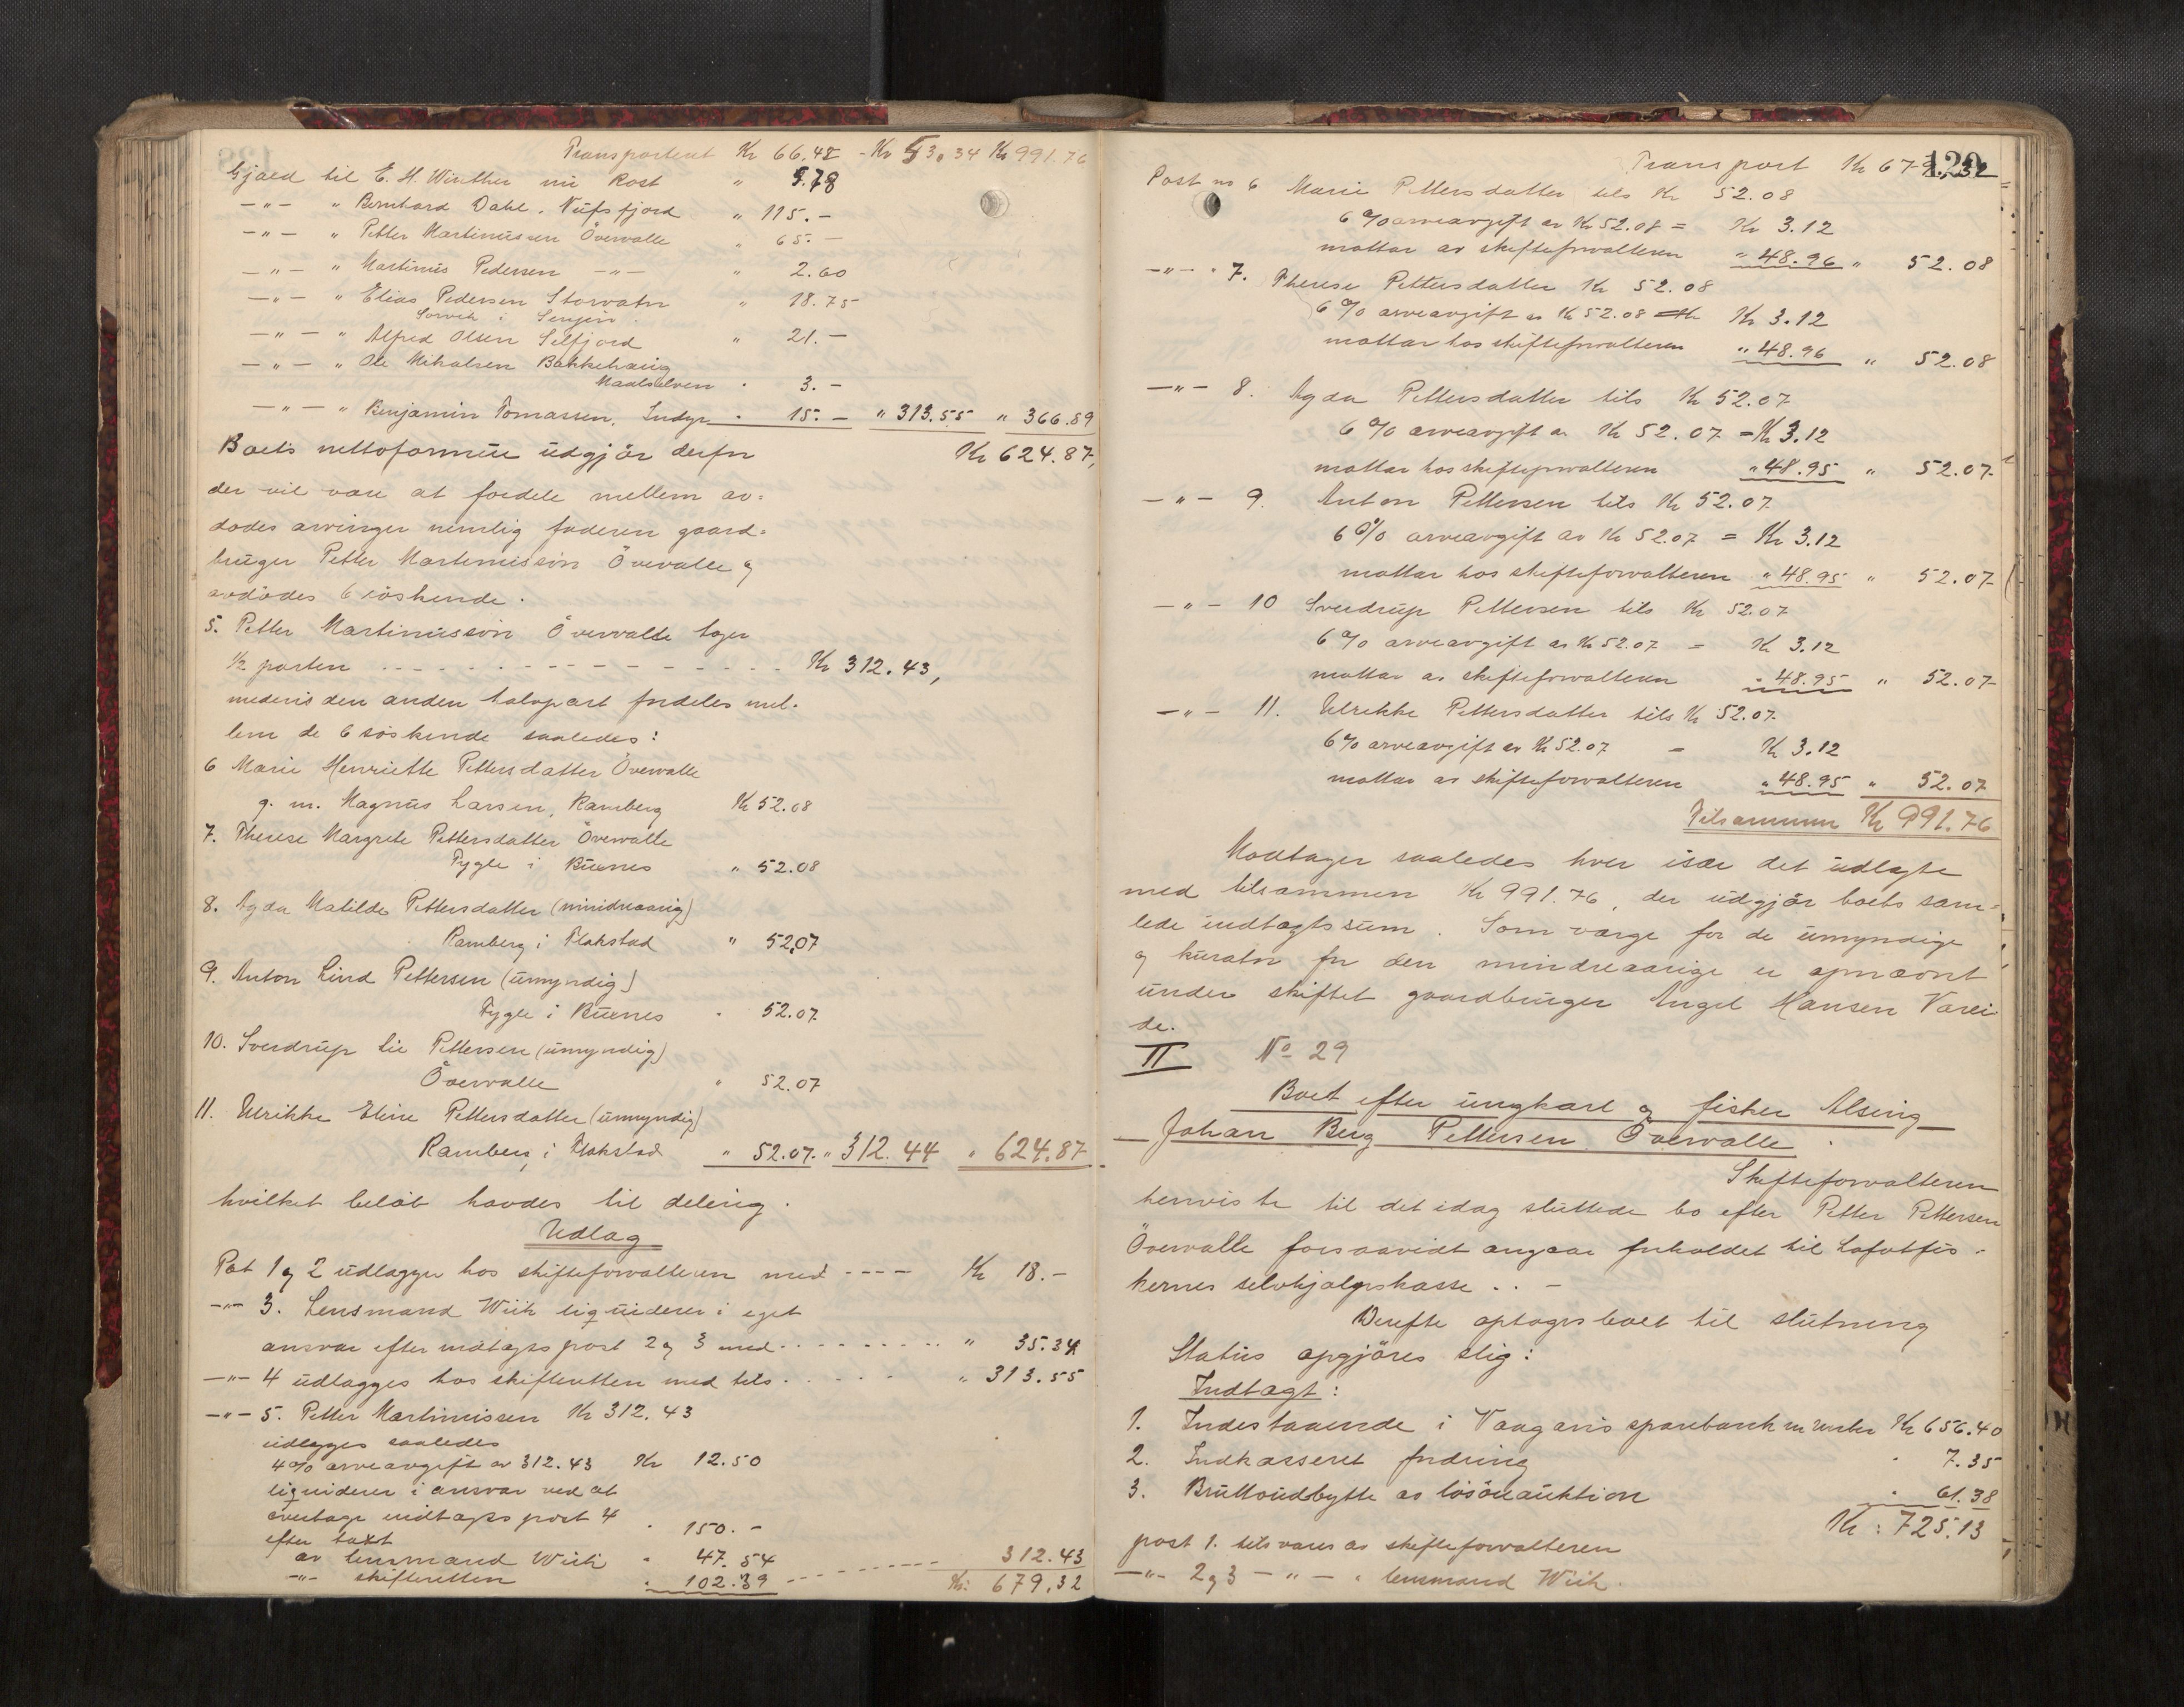 Transporteret Kr 66.42 - Kr 53.34 Kr 991.76
Gjæld til E. H. Winther Röst " 5.78
-"- " Bernhard Dahl, Nufsfjord " 115.-
-"- " Petter Martinussen Övervalle " 65.-
-"- " Martinus Pedersen -"- " 2.60
-"- " Elias Pedersen Storvatn " 18.75
i Senjen.
-"- " Alfred Olsen Selfjord " 21.-
-"- " Ole Mikalsen Bakkehaug
Maalselven " 3.-
-"- " Benjamin Tomassen, Indyr " 15.- " 313.55 " 366.89
Boets nettoformue üdgjör derfor Kr 624.87,
der vil være at fordele mellem av=
dödes arvinger nemlig faderen gaard=
brüger Petter Martinussön Övervalle og
avdödes 6 söskende.
5. Petter Martinussön Övervalle tager
1/2 parten - - - - - - - - - - - - - Kr 312.43,
medens den anden halvpart fordeles mel-
lem de 6 söskende saaledes:
6 Marie Henriette Pettersdatter Övervalle
g. m. Magnus Larsen, Ramberg Kr 52.08
7. Therese Margrete Pettersdatter Övervalle
Tygle i Buxnes " 52.08
8. Agda Matilde Pettersdatter (mindreaarig)
Ramberg i Flakstad " 52,07
9. Anton Lind Pettersen (ümyndig)
Tygle i Buxnes " 52.07
10. Sverdrüp Lie Pettersen (ümyndig)
Övervalle " 52.07
11. Ulrikke Eline Pettersdatter (ümyndig)
Ramberg i Flakstad " 52.07. " 312.44 " 624.87
hvilket belöb havdes til deling.
Udlæg
Post 1 og 2 üdlægges hos skifteforvalteren med ---- Kr 18.-
-"- 3. Lensmand Wiik liqüiderer i eget
ansvar efter indtægts post 2 og 3 med . . . . . . . . . " 35.34
-"- 4 üdlægges hos skifteretten med tils. . . . . . " 313.55
-"- 5. Petter Martinüssen Kr 312.43
üdlægges saaledes
4% arveavgift av 312.43 Kr 12.50
liqüiderer i ansvar ved at
overtage indtægts post 4
efter takst " 150.-
av lensmand Wiik " 47.54
-"- skifteretten " 102.39 - - - - - - 312.43
Kr: 679,32
129
Transport Kr 679.32
Post no 6 Marie Pettersdatter tils Kr 52.08
6% arveavgift av Kr 52.08 = Kr 3.12
mottar av skifteforvalteren " 48.96 " 52.08
-"- " 7. Therese Pettersdatter Kr 52.08
6% arveavgift av Kr 52.08 = Kr 3.12
mottar hos skifteforvalteren " 48.96 " 52.08
-"- 8. Agda Pettersdatter tils Kr 52.07
6% arveavgift av Kr 52.07 = Kr 3.12
mottar hos skifteforvalteren " 48.95 " 52.07.
-"- 9. Anton Pettersen tils Kr 52.07
6% arveavgift av Kr 52.07 = Kr 3.12
mottar hos skifteforvalteren " 48.95 " 52.07
-"- 10 Sverdrüp Pettersen tils Kr 52.07
6% arveavgift av Kr 52.07 = Kr 3.12
mottar av skifteforvalteren " 48.95 " 52.07
-"- 11. Ulrikke Pettersdatter tils Kr 52.07.
6% arveavgift av Kr 52.07 = Kr 3.12
mottar av skifteforvalteren " 48.95 " 52.07
Tilsammen Kr 991.76
Modtager saaledes hver især det üdlagte
med tilsammen Kr 991.76, der üdgjör boets sam=
lede indtægtssüm. Som værge for de ümyndige
og kürator for den mindreaarige er opnævnt
ünder skiftet gaardbrüger Angel Hansen Varei-
de.
II No 29
Boet efter üngkarl og fisker Alsing
Johan Berg Pettersen Övervalle.
Skifteforvalteren
henviste til det idag slüttede bo efter Petter Pettersen
Övervalle forsaavidt angaar forholdet til Lofotfis-
kernes selvhjælpskasse. . -
Derefter optages boet til slütning
Status opgjöres slig:
Indtægt:
1. Indestaaende i Vaagans sparebank m renter Kr 656.40
2. Indkasseret fordring " 7.35
3. Brüttoüdbytte av lösöreauktion " 61.38
Kr: 725.13
post 1. tilsvares av skifteforvalteren
-"- 2 og 3 -"- " lensmand Wiik.